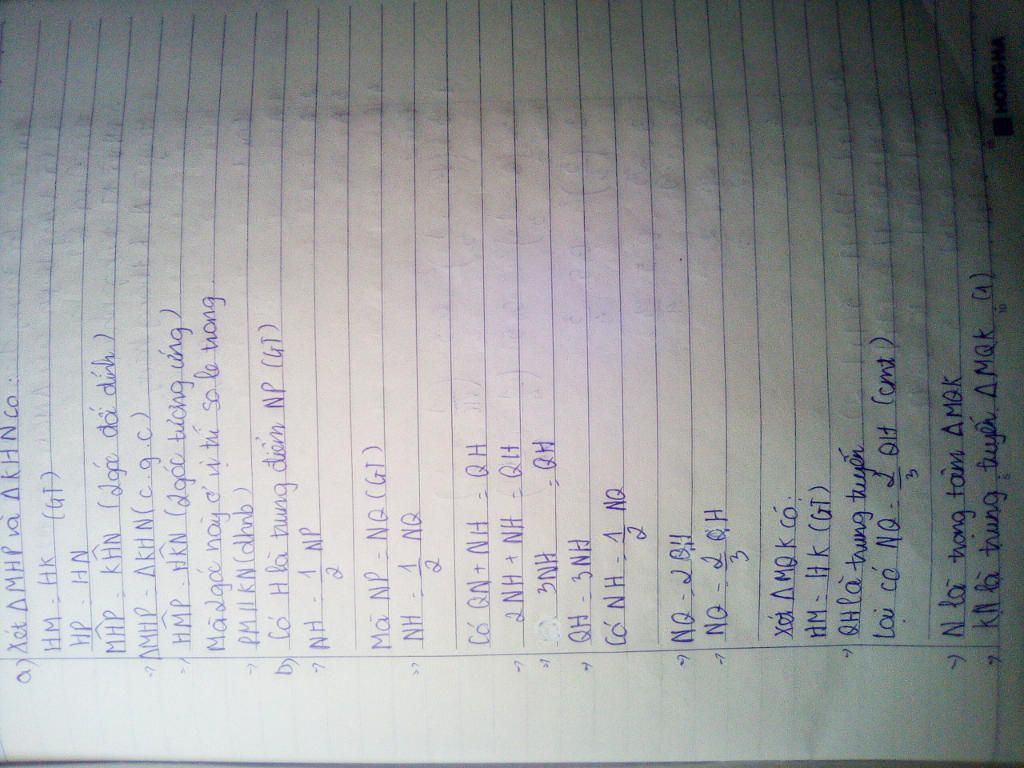 a) Xét ΔMHP và ΔKHN có:
HM = HK (GT)
HP = HN
MĤP = KĤN (2 góc đối đỉnh)
→ ΔMHP = ΔKHN (c.g.c)
→ HM̂P = HK̂N (2 góc tương ứng)
Mà 2 góc này ở vị trí so le trong
→ PM // KN (dhnb)
b) Có H là trung điểm NP (GT)
→ NH = 1/2 NP
Mà NP = NQ (GT)
→ NH = 1/2 NQ
Có QN + NH = QH
→ 2NH + NH = QH
→ 3NH = QH
→ QH = 3NH
Có NH = 1/2 NQ
→ NQ = 2QH
→ NQ = 2/3 QH
Xét ΔMQK có:
HM = HK (GT)
→ QH là trung tuyến
Lại có NQ = 2/3 QH (cmt)
→ N là trọng tâm ΔMQK
→ KN là trung tuyến ΔMQK (1)
HONGHA